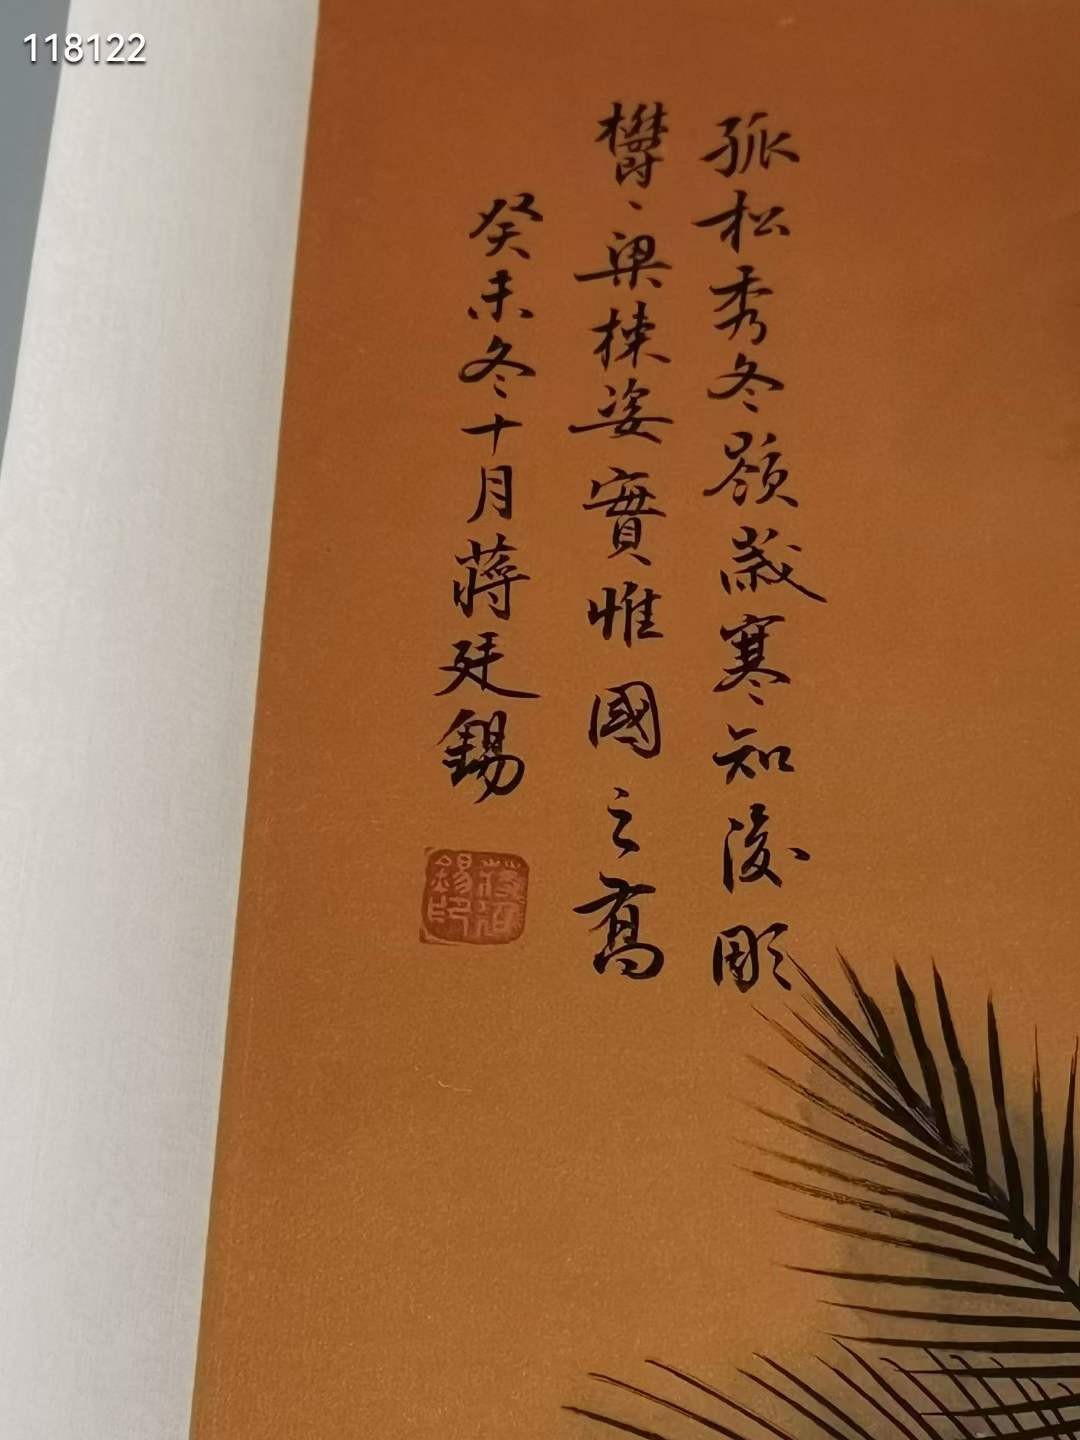 118122
孤松秀冬嶺歲寒知後彫
欝〻梁棟姿實惟國之高
癸未冬十月蔣廷錫
蔣廷
錫印